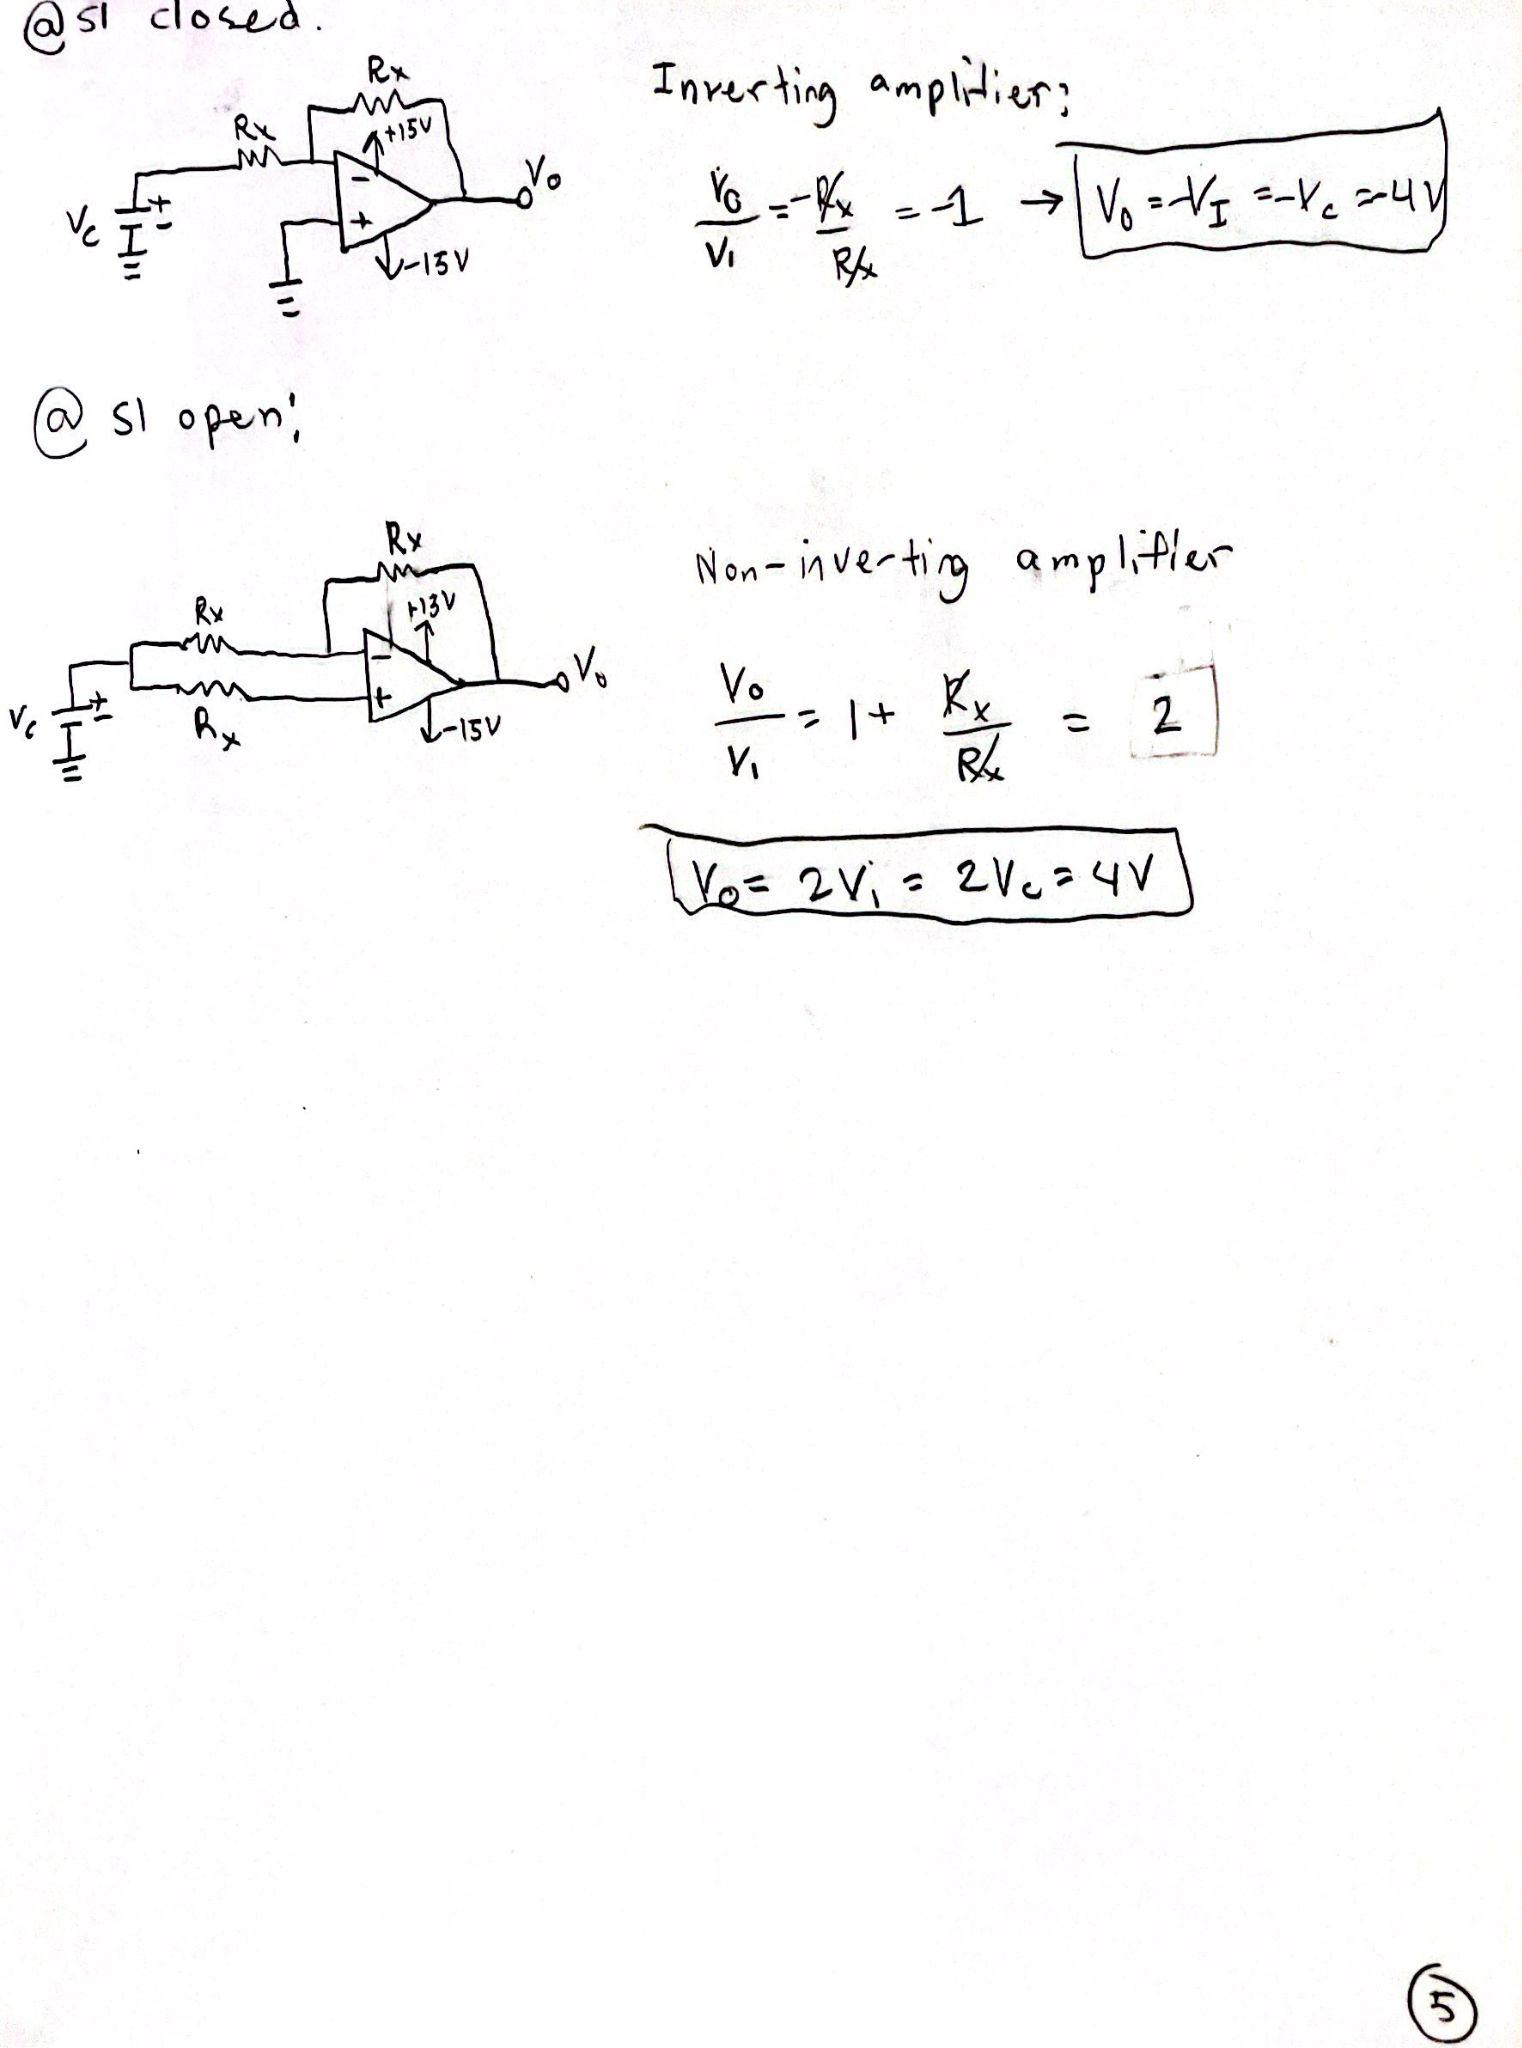 @ S1 closed.
Rx
Rx
+15V
Vc
+
-
-
+
Vo
-15V
Inverting amplifier:
Vo/V1 = -Rx/Rx = -1 → Vo = -VI = -Vc = -4V
@ S1 open:
Rx
Rx
+13V
Vc
+
-
-
+
Vo
Rx
-15V
Non-inverting amplifier
Vo/Vi = 1 + Rx/Rx = 2
Vo = 2Vi = 2Vc = 4V
5